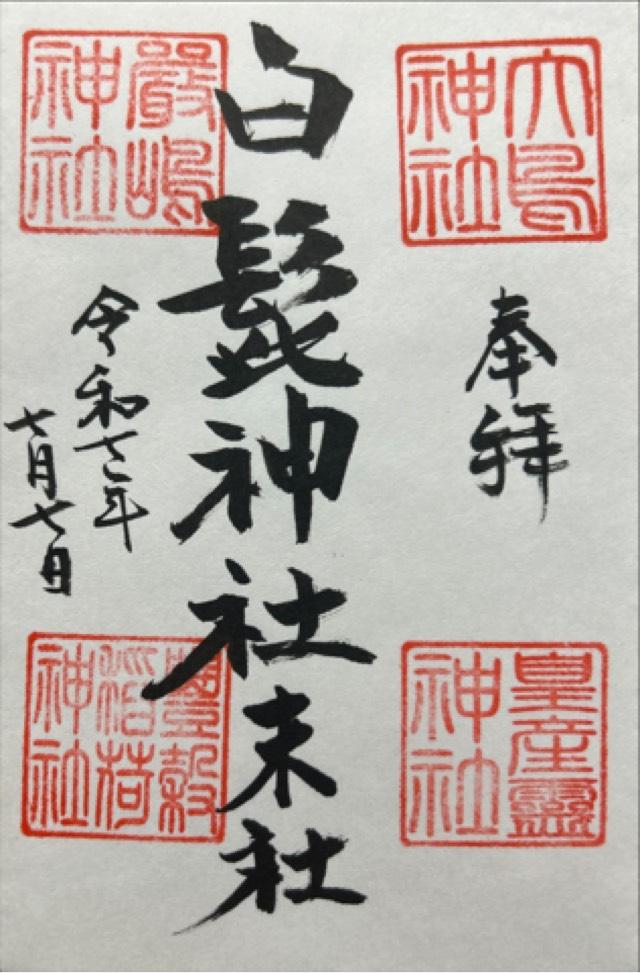 大鳥神社
奉拝
皇産靈神社
白髭神社末社
嚴嶋神社
令和七年
七月七日
豐穀稲荷神社